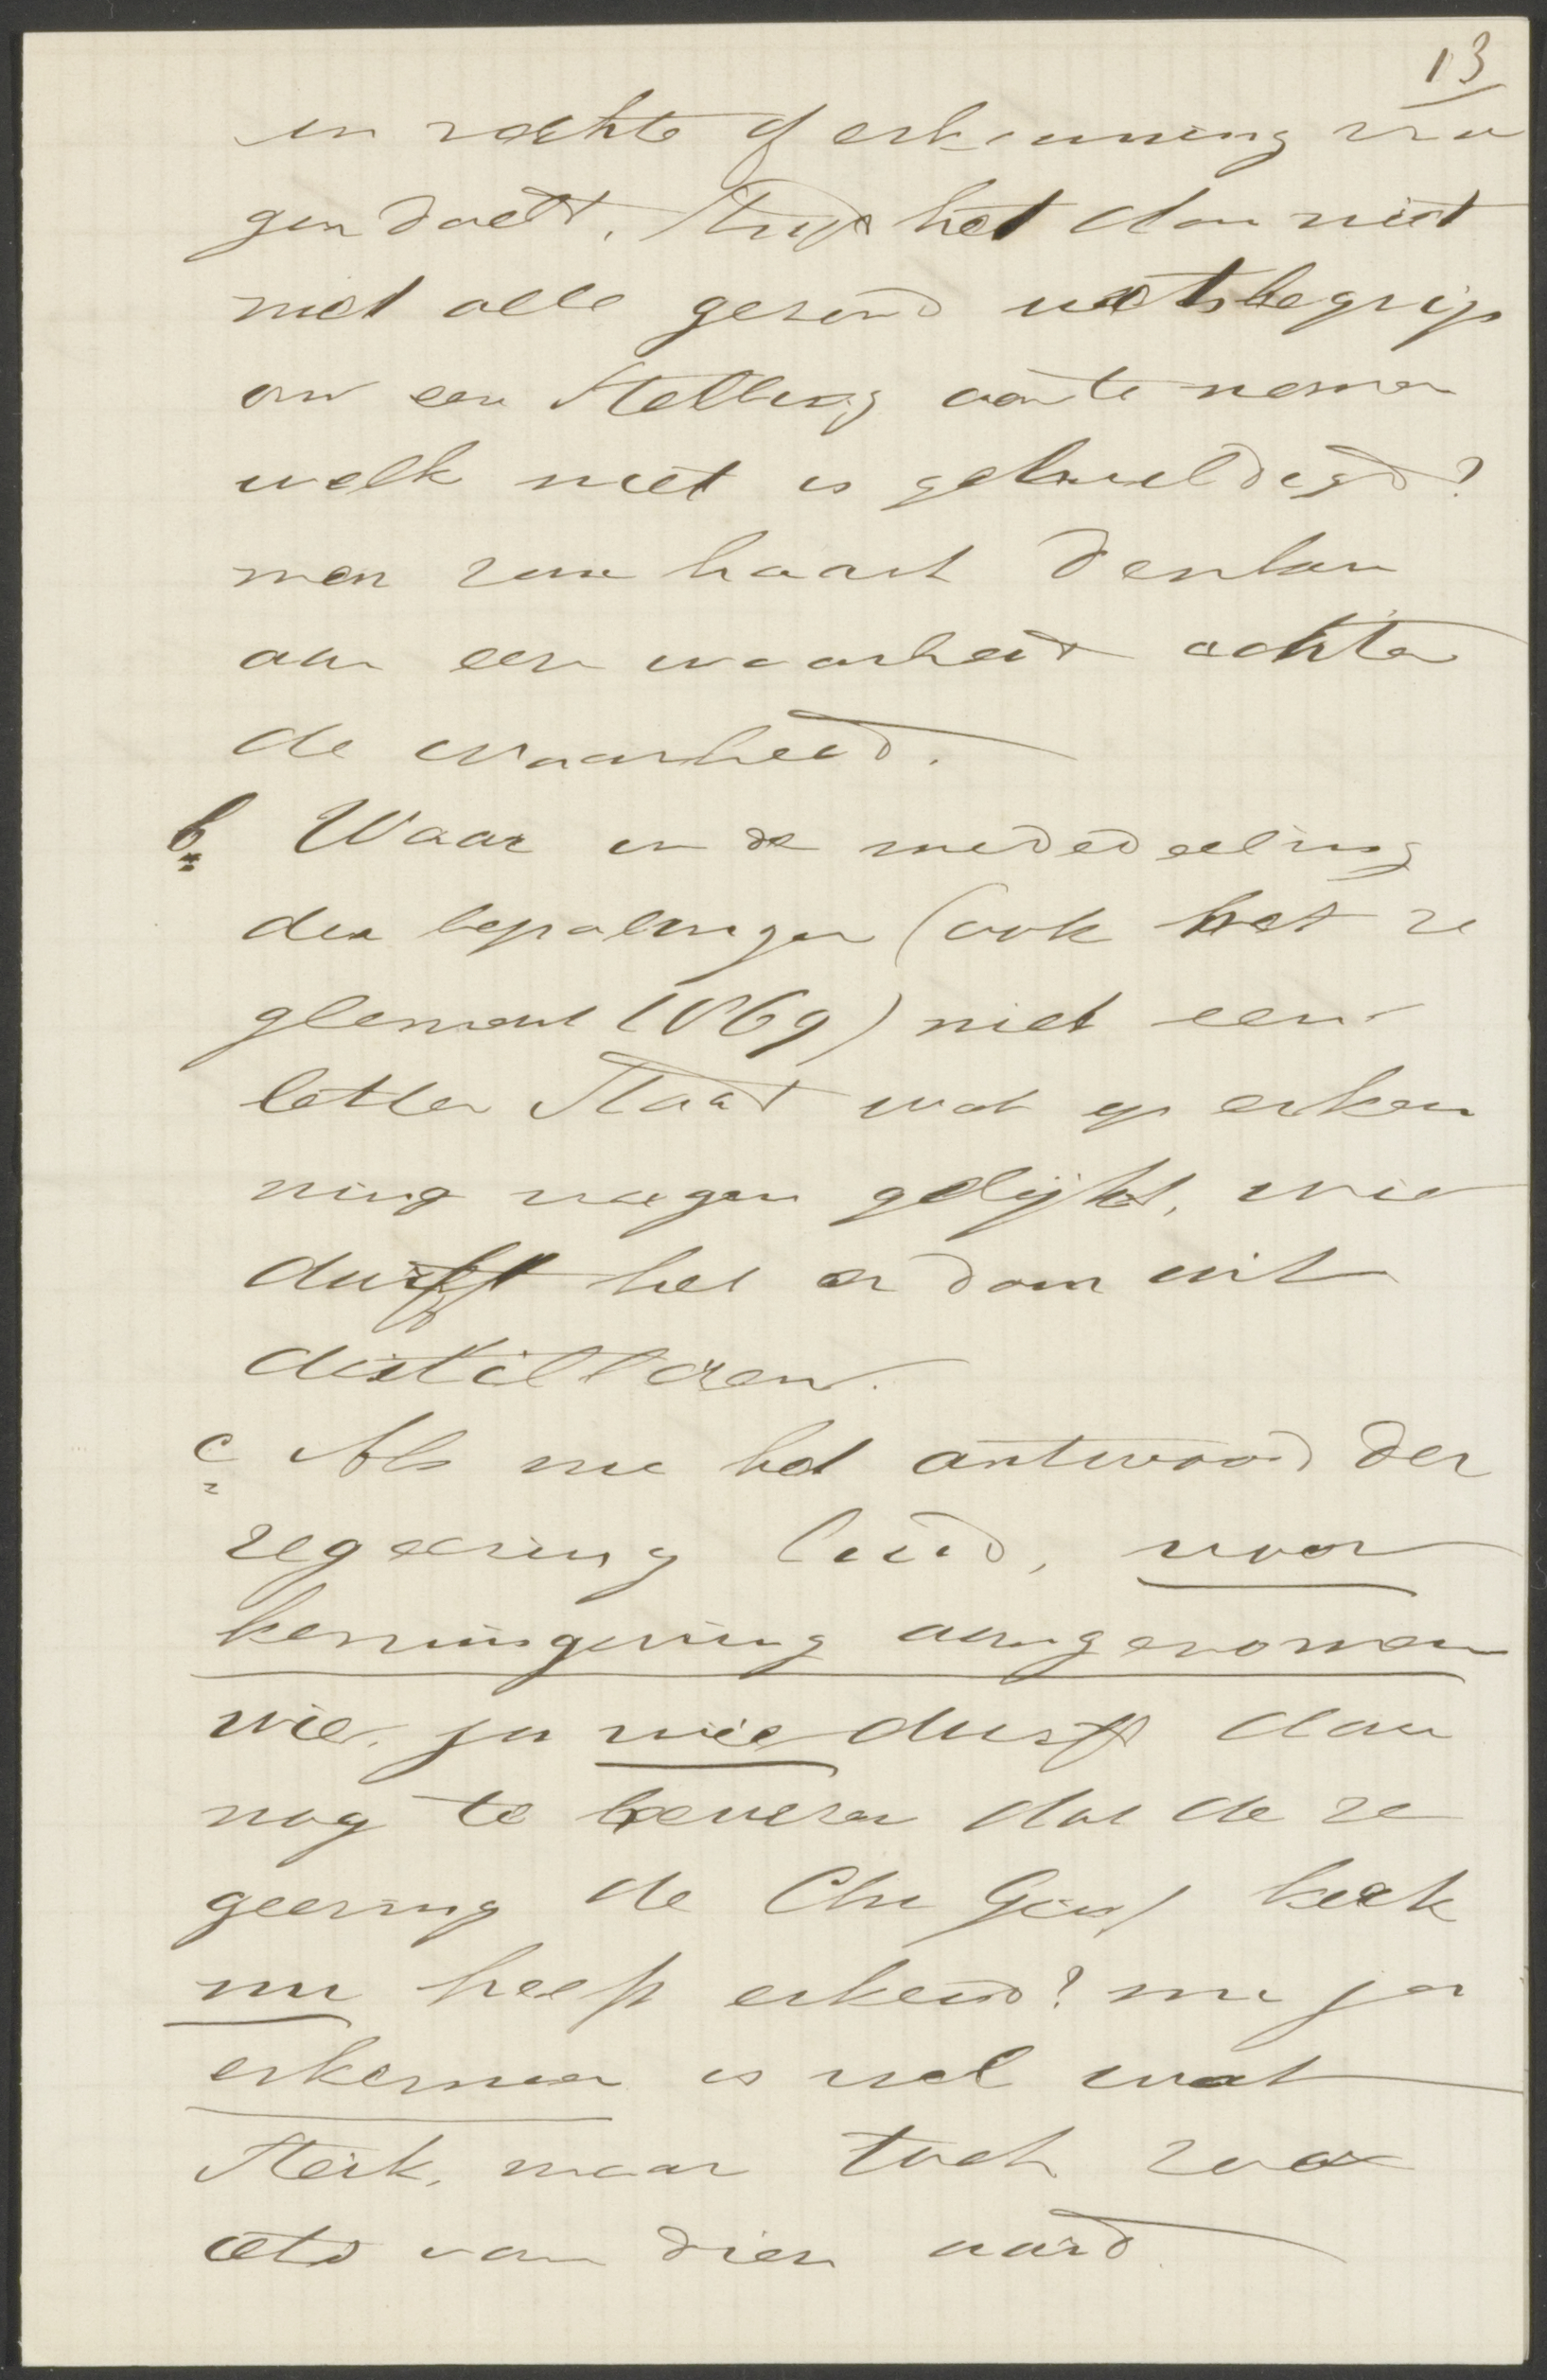 13
in rechte of erkenning vra
gen doelt. Strijd het dan niet
met alle gezond wetsbegrip
om een stelling aan te nemen
welk niet is gehuldigd?
men zou haast denken
aan een waarheid achter
de waarheid.
b Waar in de mededeeling
der bepalingen (ook het re
glement 1869) niet een
letter staat wat op erken
ning vragen gelijkt, wie
durft het er dan uit
distilleren.
c Als nu het antwoord der
regeering luid, voor
kennisgeving aangenomen
wie, ja wie durft dan
nog te beweren dat de re
geering de Chr Geref kerk
nu heeft erkend? nu ja
erkennen is wel wat
sterk, maar toch zoo
iets van dien aard.